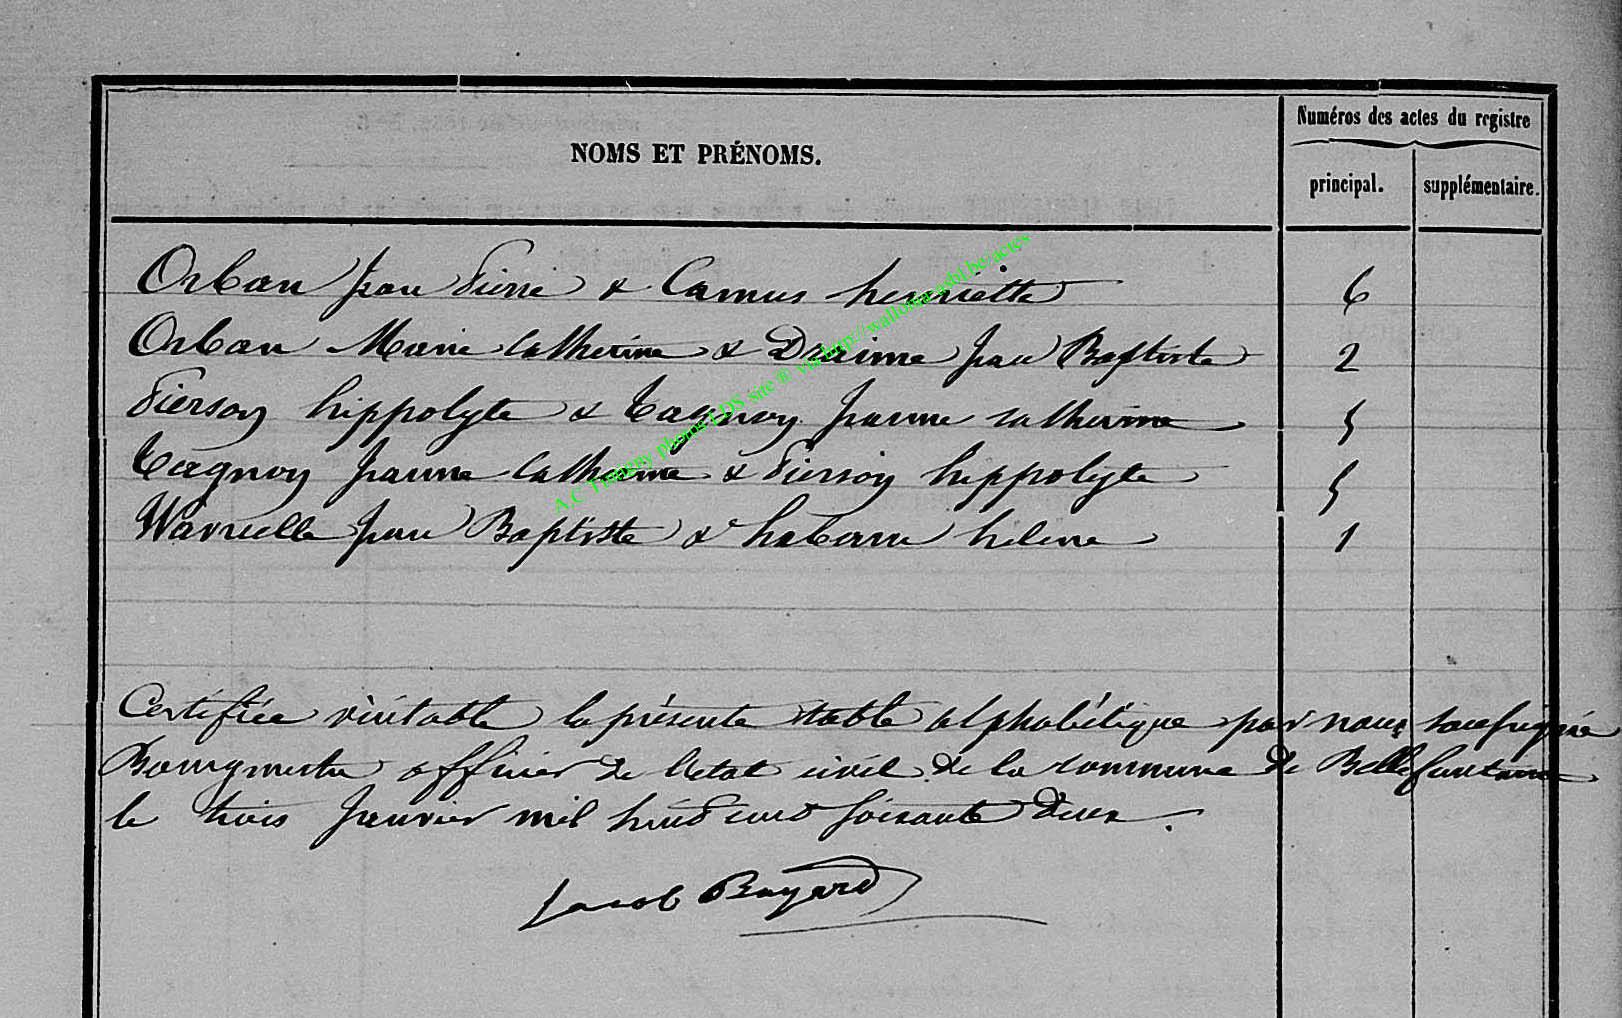 Numéros des actes du registre
NOMS ET PRÉNOMS.
principal. supplémentaire.
Orban Jean Pierre & Camus henriette 6
Orban Marie Catherine & Jean Baptiste 2
Pierson hippolyte & Tagnon Jeanne catherine 5
Tagnon Jeanne Catherine & Pierson hippolyte 5
Jean Baptiste & helene 1
Certifiée véritable la présente table alphabétique par nous soussignée
Bourgmestre officier de l'etat civil de la commune de Bellefontaine
le trois Janvier mil huit cent soixante deux.
Jacob Bayard
A.C Tintigny photos LDS site ® via http://wallonia.ght.be/actes